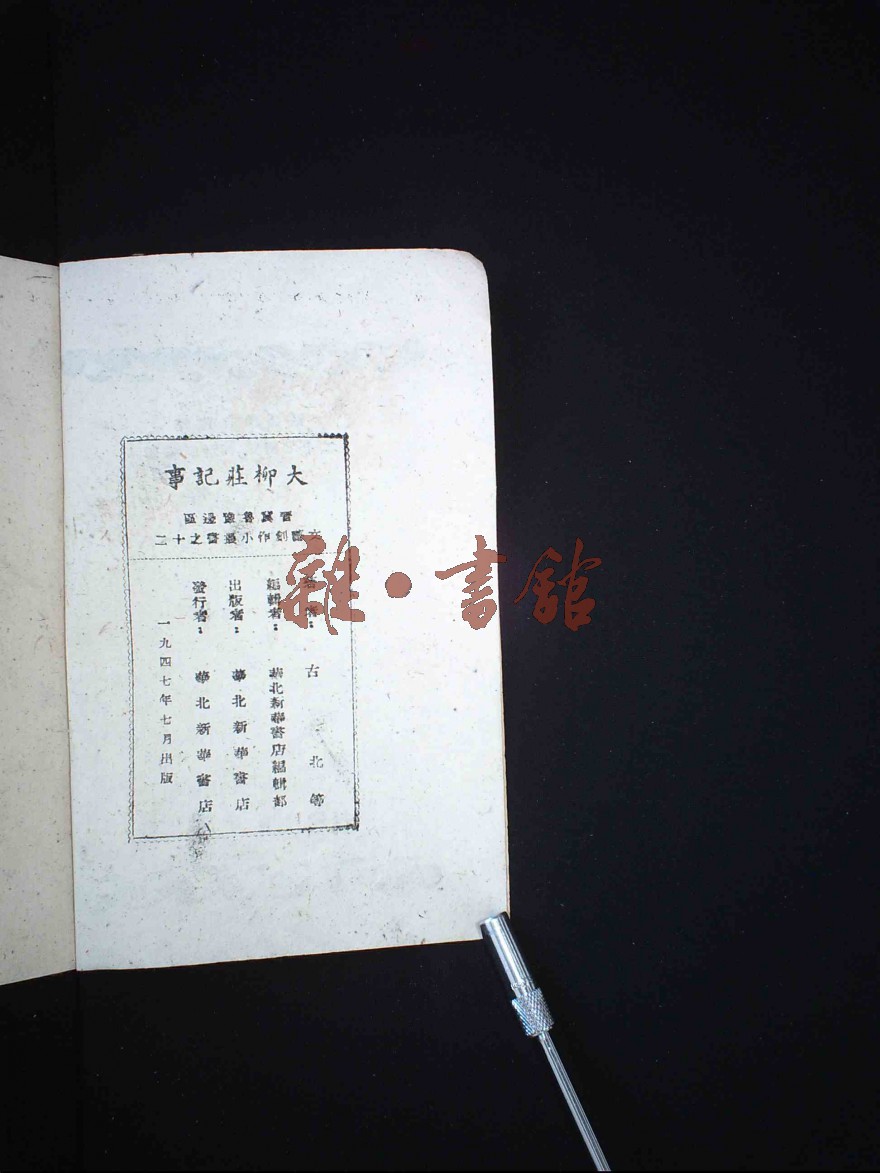 大柳莊記事
晋冀魯豫邊區
文藝創作小叢書之十二
著者：古北等
編輯者：華北新華書店編輯部
出版者：華北新華書店
發行者：華北新華書店
一九四七年七月出版
雜·書館